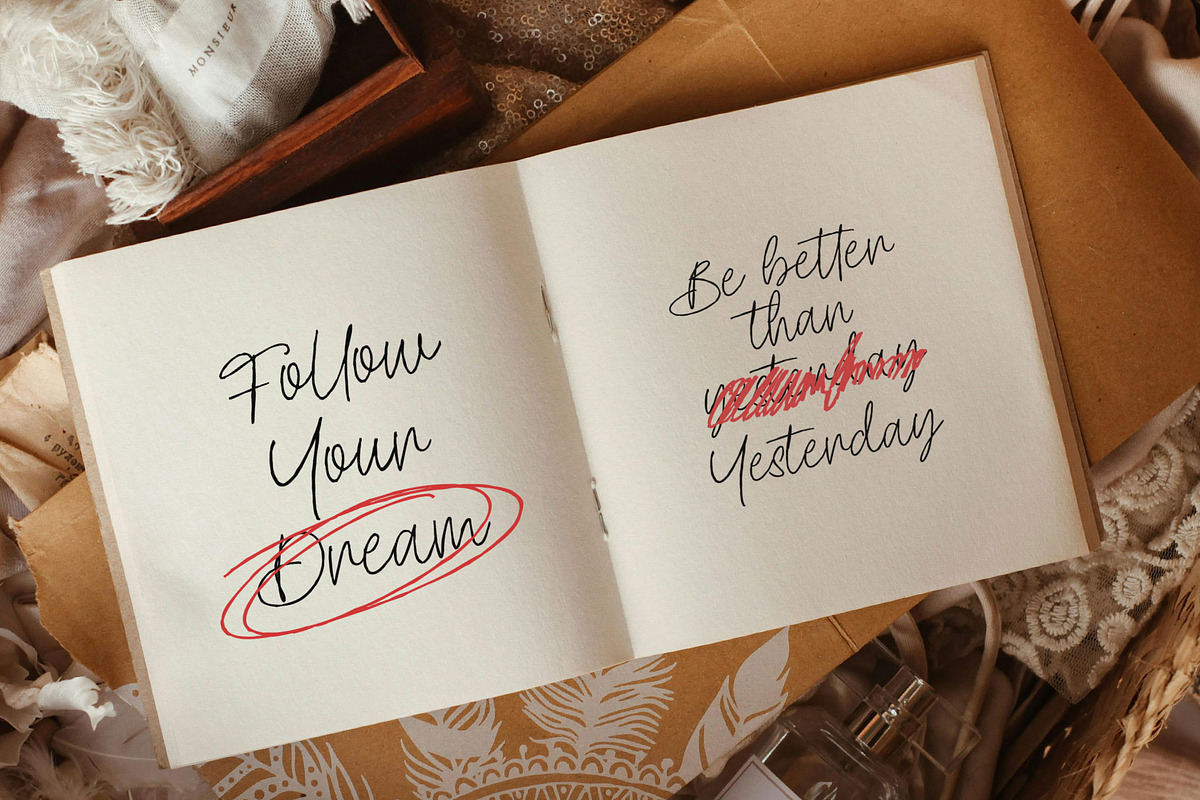 MONSIEUR
Follow
Your
Dream
Be better
than
yesterday
Yesterday